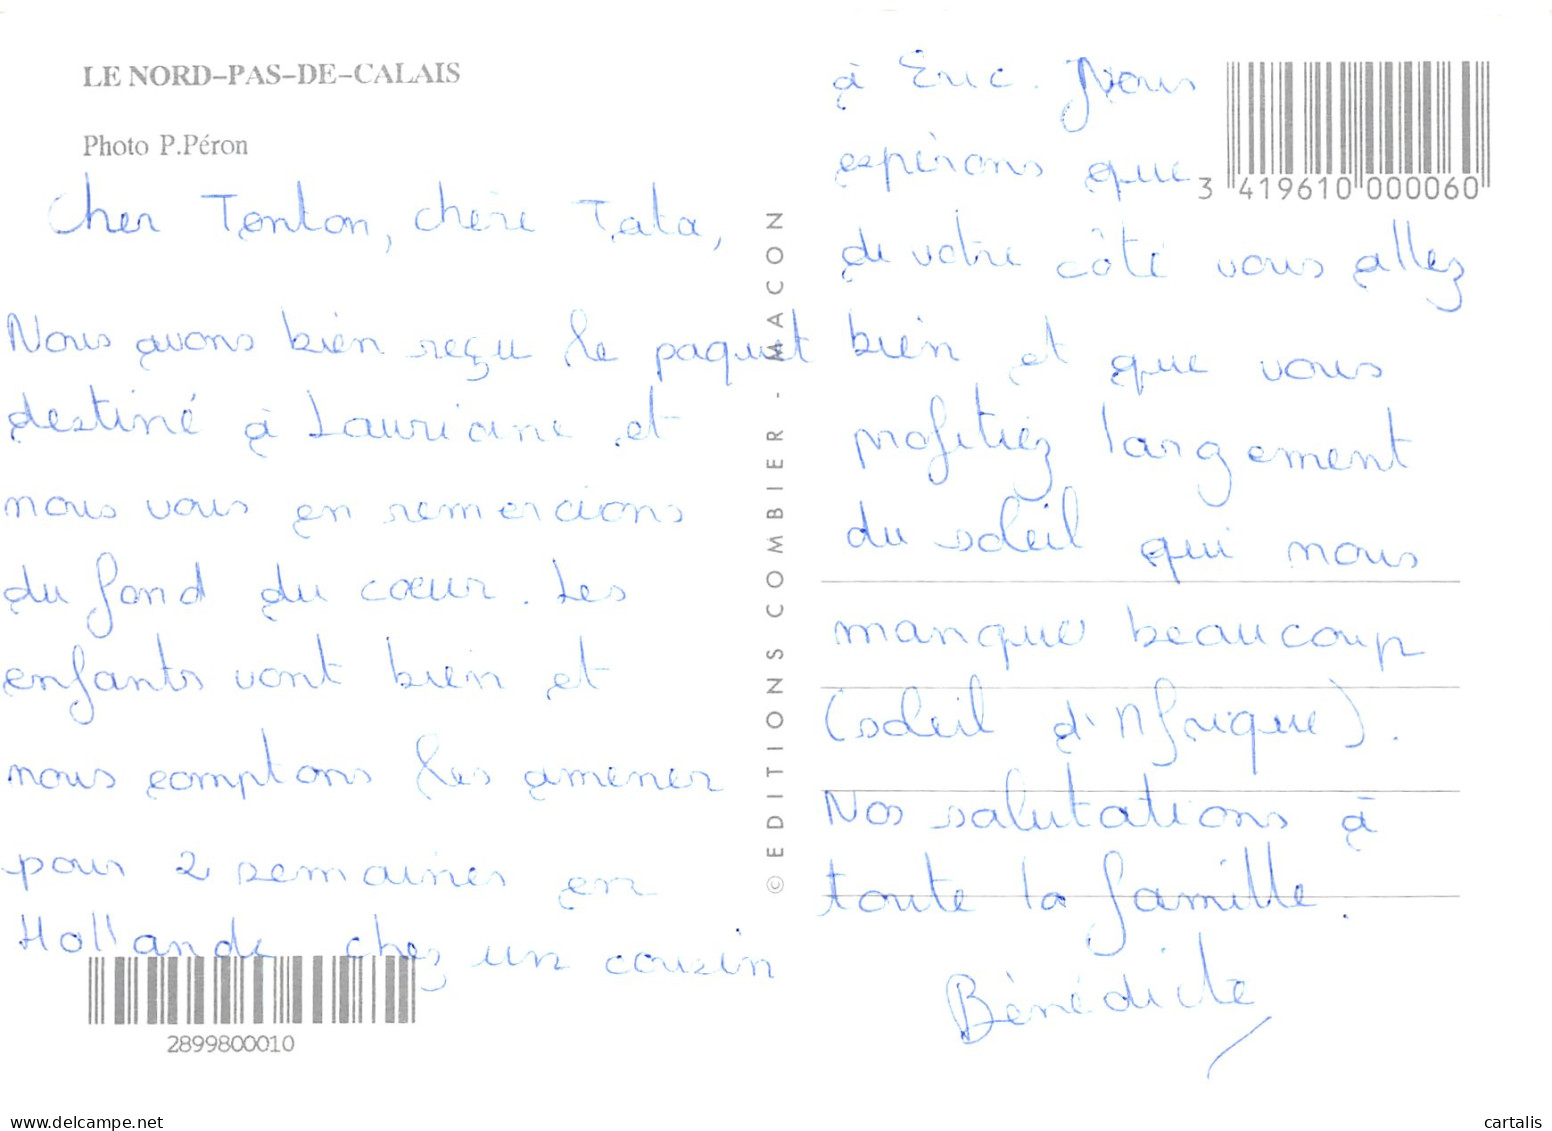 LE NORD-PAS-DE-CALAIS
Photo P.Péron
Cher Tonton, chère Tata,
Nous avons bien reçu le paquet
destiné à Lauriane et
nous vous en remercions
du fond du cœur. Les
enfants vont bien et
nous comptons les amener
pour 2 semaines en
Hollande chez un cousin
2899800010
© EDITIONS COMBIER - MACON
à Eric. Nous
espérons que
3 419610 000060
de votre côté vous allez
bien et que vous
profitiez largement
du soleil qui nous
manque beaucoup
(soleil d'Afrique).
Nos salutations à
toute la famille.
Bénédicte
delcampe.net
cartalis